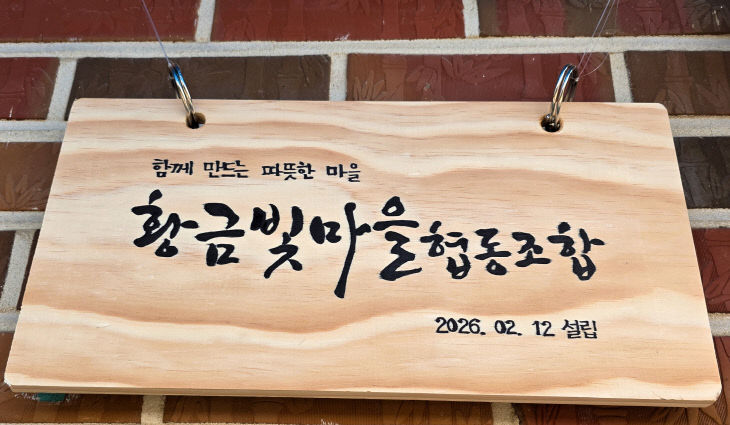 함께 만드는 따뜻한 마을
황금빛마을협동조합
2026. 02. 12 설립